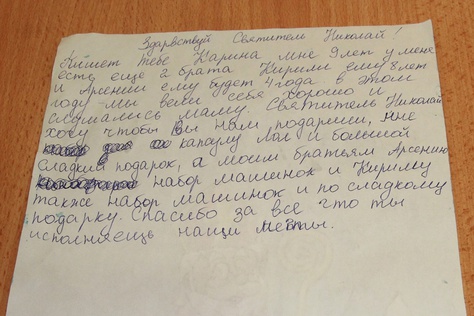 Здарвствуй Святитель Николай!
Пишет тебе Карина мне 9 лет у меня
есть еще 2 брата Кирилл ему 8 лет
и Арсений ему будет 4 года в этом
году мы вели себя хорошо и
слушались маму. Святитель Николай
хочу чтобы Вы нам подарили, мне
капсулу Лол и большой
сладкий подарок, а моим братьям Арсению
набор машинок и Кириллу
также набор машинок и по сладкому
подарку. Спасибо за все что ты
исполняешь наши мечты.